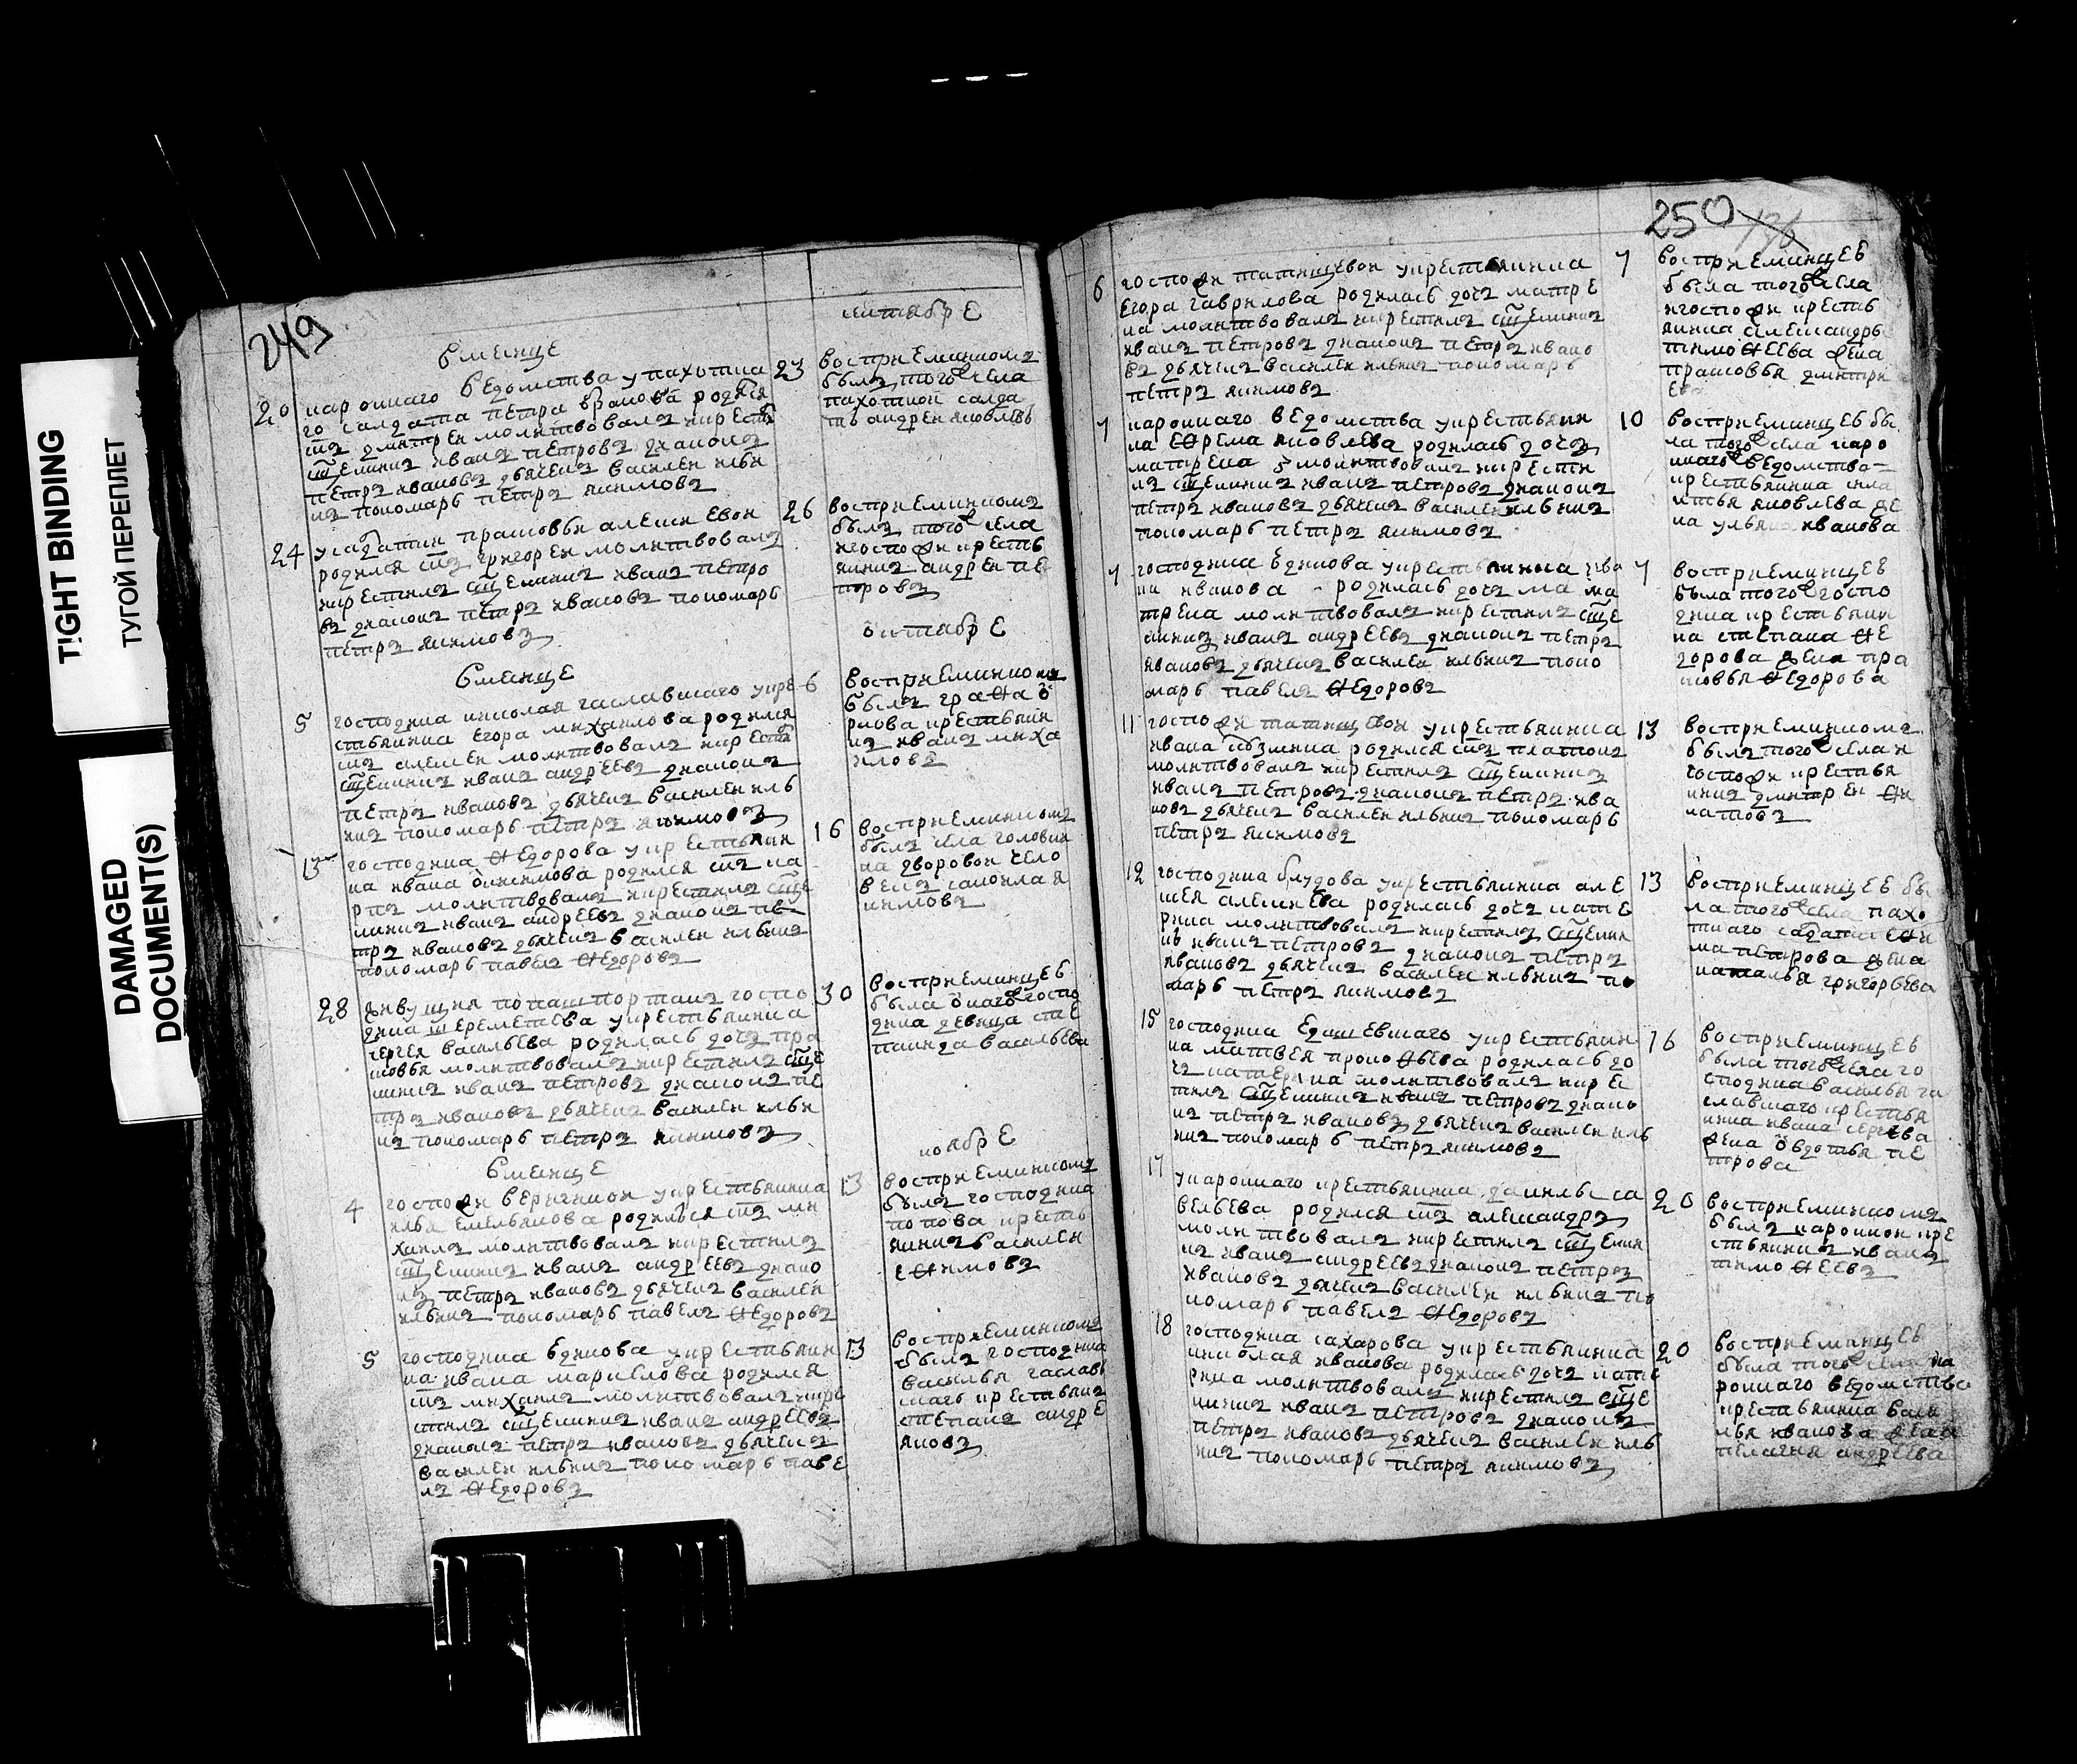 TIGHT BINDING
ТУГОЙ ПЕРЕПЛЕТ
DAMAGED
DOCUMENT(S)
249
в месяце
сентябре
20
коронного ведомства у пахотна
го салдата петра родися
снъ дмитреи молитвовалъ и крестилъ
сщенникъ иванъ петровъ диаконъ
петръ ивановъ дьячекъ василеи ильи
нъ пономарь петръ якимовъ
23
восприемникомъ
былъ того села
пахотнои салда
тъ андреи яковлевъ
24
у салдатки прасковьи алексеевои
родился снъ григореи молитвовалъ
и крестилъ сщенникъ иванъ петро
въ диаконъ петръ ивановъ пономарь
петръ якимовъ
26
восприемникомъ
былъ того села
и госпожи кресть
янинъ андреи пе
тровъ
в месяце
октябре
5
господина николая гаславскаго у кре
стьянина егора михаилова родился
снъ алексеи молитвовалъ и крести
сщенникъ иванъ андреевъ диаконъ
петръ ивановъ дьячекъ василеи иль
инъ пономарь петръ якимовъ
6
восприемникомъ
былъ
крестьянин
нъ иванъ миха
иловъ
15
господина ѳедорова у крестьянин
на ивана онисимова родился снъ ка
рпъ молитвовалъ и крестилъ сще
нникъ иванъ андреевъ диаконъ пе
тръ ивановъ дьячекъ василеи ильинъ
пономарь павелъ ѳедоровъ
16
восприемникомъ
былъ села головин
на дворовои чело
векъ самоила я
кимовъ
28
живущия по пашпортамъ госпо
дина шереметева у крестьянина
сергея васильева родилась дочь пра
сковья молитвовалъ и крестилъ сще
нникъ иванъ петровъ диаконъ пе
тръ ивановъ дьячекъ василеи ильи
нъ пономарь петръ якимовъ
30
восприемницею
была онаго госпо
дина девица сте
панида васильева
в месяце
ноябре
4
госпожи у крестьянина
ильи емельянова родился снъ ми
хаилъ молитвовалъ и крестилъ
сщенникъ иванъ андреевъ диако
нъ петръ ивановъ дьячекъ василеи
ильинъ пономарь павелъ ѳедоровъ
13
восприемникомъ
былъ господина
попова кресть
янинъ василеи
еѳимовъ
5
господина бдикова у крестьянин
на ивана маркелова родился
снъ михаилъ молитвовалъ и кре
стилъ сщенникъ иванъ андреевъ
диаконъ петръ ивановъ дьячекъ
василеи ильинъ пономарь паве
лъ ѳедоровъ
13
восприемникомъ
былъ господина
василья гаслав
скагъ крестьянинъ
степанъ андре
яновъ
250
6
госпожи татищевои у крестьянина
егора гаврилова родилась дочь матре
на молитвовалъ и крестилъ сщенникъ
иванъ петровъ диаконъ петръ ивано
въ дьячекъ василеи ильинъ пономарь
петръ якимовъ
7
восприемницею
была того села
и госпожи кресть
янина александры
тимоѳеева жена
прасковья дмитри
ева
7
коронного ведомства у крестьянин
на еѳрема яковлева родилась дочь
матрена молитвовалъ и крести
лъ сщенникъ иванъ петровъ диаконъ
петръ ивановъ дьячекъ василеи ильинъ
пономарь петръ якимовъ
10
восприемницею бы
ла того села коро
ннаго ведомства
крестьянина
яковлева же
на ульяна иванова
7
господина бдикова у крестьянина ива
на иванова родилась дочь ма ма
трена молитвовалъ и крестилъ сще
нникъ иванъ андреевъ диаконъ петръ
ивановъ дьячекъ василеи ильинъ поно
марь павелъ ѳедоровъ
7
восприемницею
была того госпо
дина крестьянин
на степана ѳе
дорова жена пра
сковья ѳедорова
11
госпожи татищевои у крестьянина
ивана кузмина родился снъ платонъ
молитвовалъ и крестилъ сщенникъ
иванъ петровъ диаконъ петръ ива
новъ дьячекъ василеи ильинъ пономарь
петръ якимовъ
13
восприемникомъ
былъ того села и
госпожи крестья
нинъ дмитреи ѳи
латовъ
12
господина блудова у крестьянина але
ксея алексеева родилась дочь кате
рина молитвовалъ и крестилъ сщенни
къ иванъ петровъ диаконъ петръ
ивановъ дьячекъ василеи ильинъ по
марь петръ якимовъ
13
восприемницею бы
ла того села пахо
тнаго салдата еѳи
ма петрова жена
наталья григорьева
15
господина у крестьянин
на матвея прокоѳьева родилась до
чь катерина молитвовалъ и кре
стилъ сщенникъ иванъ петровъ диако
нъ петръ ивановъ дьячекъ василеи иль
инъ пономарь петръ якимовъ
16
восприемницею
была того села го
сподина василья га
славскаго крестья
нина ивана сергеева
жена овдотья пе
трова
17
у коронного крестьянина данилы са
вельева родился снъ александръ
молитвовалъ и крестилъ сщенни
къ иванъ андреевъ диаконъ петръ
ивановъ дьячекъ василеи ильинъ по
номарь павелъ ѳедоровъ
20
восприемникомъ
былъ коронои кре
стьянинъ иванъ
тимоѳеевъ
18
господина сахарова у крестьянина
николая иванова родилась дочь кате
рина молитвовалъ и крестилъ сще
нникъ иванъ петровъ диаконъ
петръ ивановъ дьячекъ василеи иль
инъ пономарь петръ якимовъ
20
восприемницею
была того села ко
роннаго ведомства
крестьянина васи
лья иванова жена
пелагия андреева